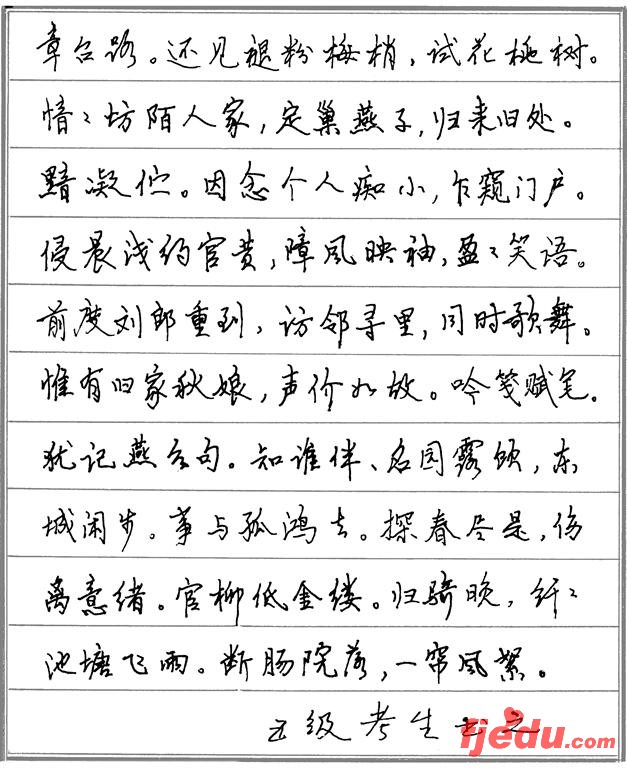 章台路。还见褪粉梅梢，试花桃树。
愔々坊陌人家，定巢燕子，归来旧处。
黯凝伫。因念个人痴小，乍窥门户。
侵晨浅约官黄，障风映袖，盈々笑语。
前度刘郎重到，访邻寻里，同时歌舞。
惟有旧家秋娘，声价如故。吟笺赋笔。
犹记燕台句。知谁伴、名园露饮，东
城闲步。事与孤鸿去。探春尽是，伤
离意绪。官柳低金缕。归骑晚，纤々
池塘飞雨。断肠院落，一帘风絮。
五级考生书之
rjedu.com